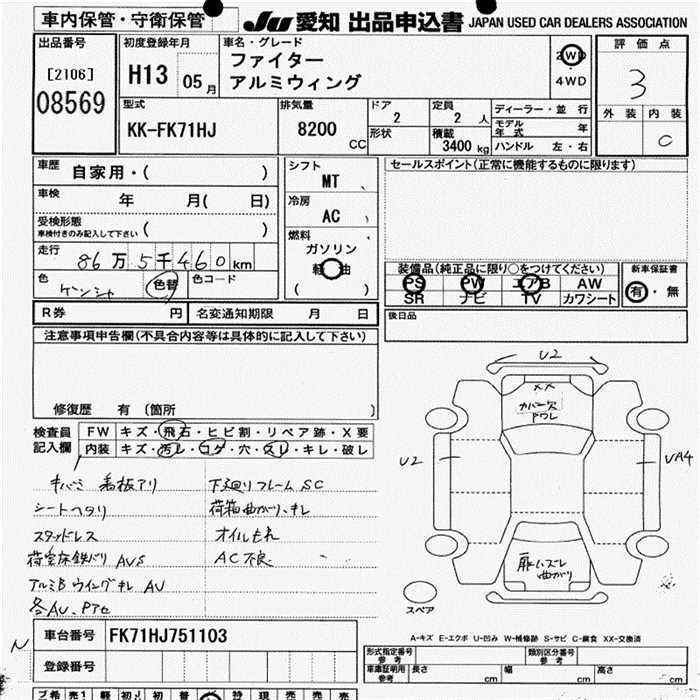 車内保管・守衛保管
JU 愛知 出品申込書 JAPAN USED CAR DEALERS ASSOCIATION
出品番号
[2106]
08569
初度登録年月
H13 05月
車名・グレード
ファイター
アルミウィング
2WD
4WD
評価点
3
外装 内装
C
型式
KK-FK71HJ
排気量
8200 CC
ドア
2
形状
定員
2 人
積載
3400 kg
ディーラー・並行
モデル年式 年
ハンドル 左・右
車歴 自家用・( )
車検 年 月( 日)
受検形態
車検付きのみ記入して下さい ( )
走行 86万5千460km
色 ゲンシャ 色替 色コード
シフト
MT
冷房
AC
燃料
ガソリン
軽油
( )
セールスポイント(正常に機能するものに限ります)
装備品(純正品に限り○をつけてください)
PS PW エアB AW
SR ナビ TV カワシート
新車保証書
有・無
R券 円 名変通知期限 月 日
後日品
注意事項申告欄(不具合内容等は具体的に記入して下さい)
修復歴 有 (箇所 )
検査員
記入欄
FW キズ・飛石・ヒビ割・リペア跡・X要
内装 キズ・汚レ・コゲ・穴・スレ・キレ・破レ
キバミ 看板アリ
シートヘタリ
スタッドレス
荷室床鉄バリ AVS
アルミB ウイングキレ AU
各AU、Pアセ
下廻りフレームSC
荷箱曲がり、キレ
オイルもれ
AC不良
U2
XX
カバー欠
Pワレ
U2
UA4
扉ハズレ
曲がり
スペア
A-キズ E-エクボ U-凹み W-補修跡 S-サビ C-腐食 XX-交換済
N
車台番号 FK71HJ751103
登録番号
形式指定番号
参考
類別区分番号
参考
車庫証明用
参考
長さ cm 幅 cm 高さ cm